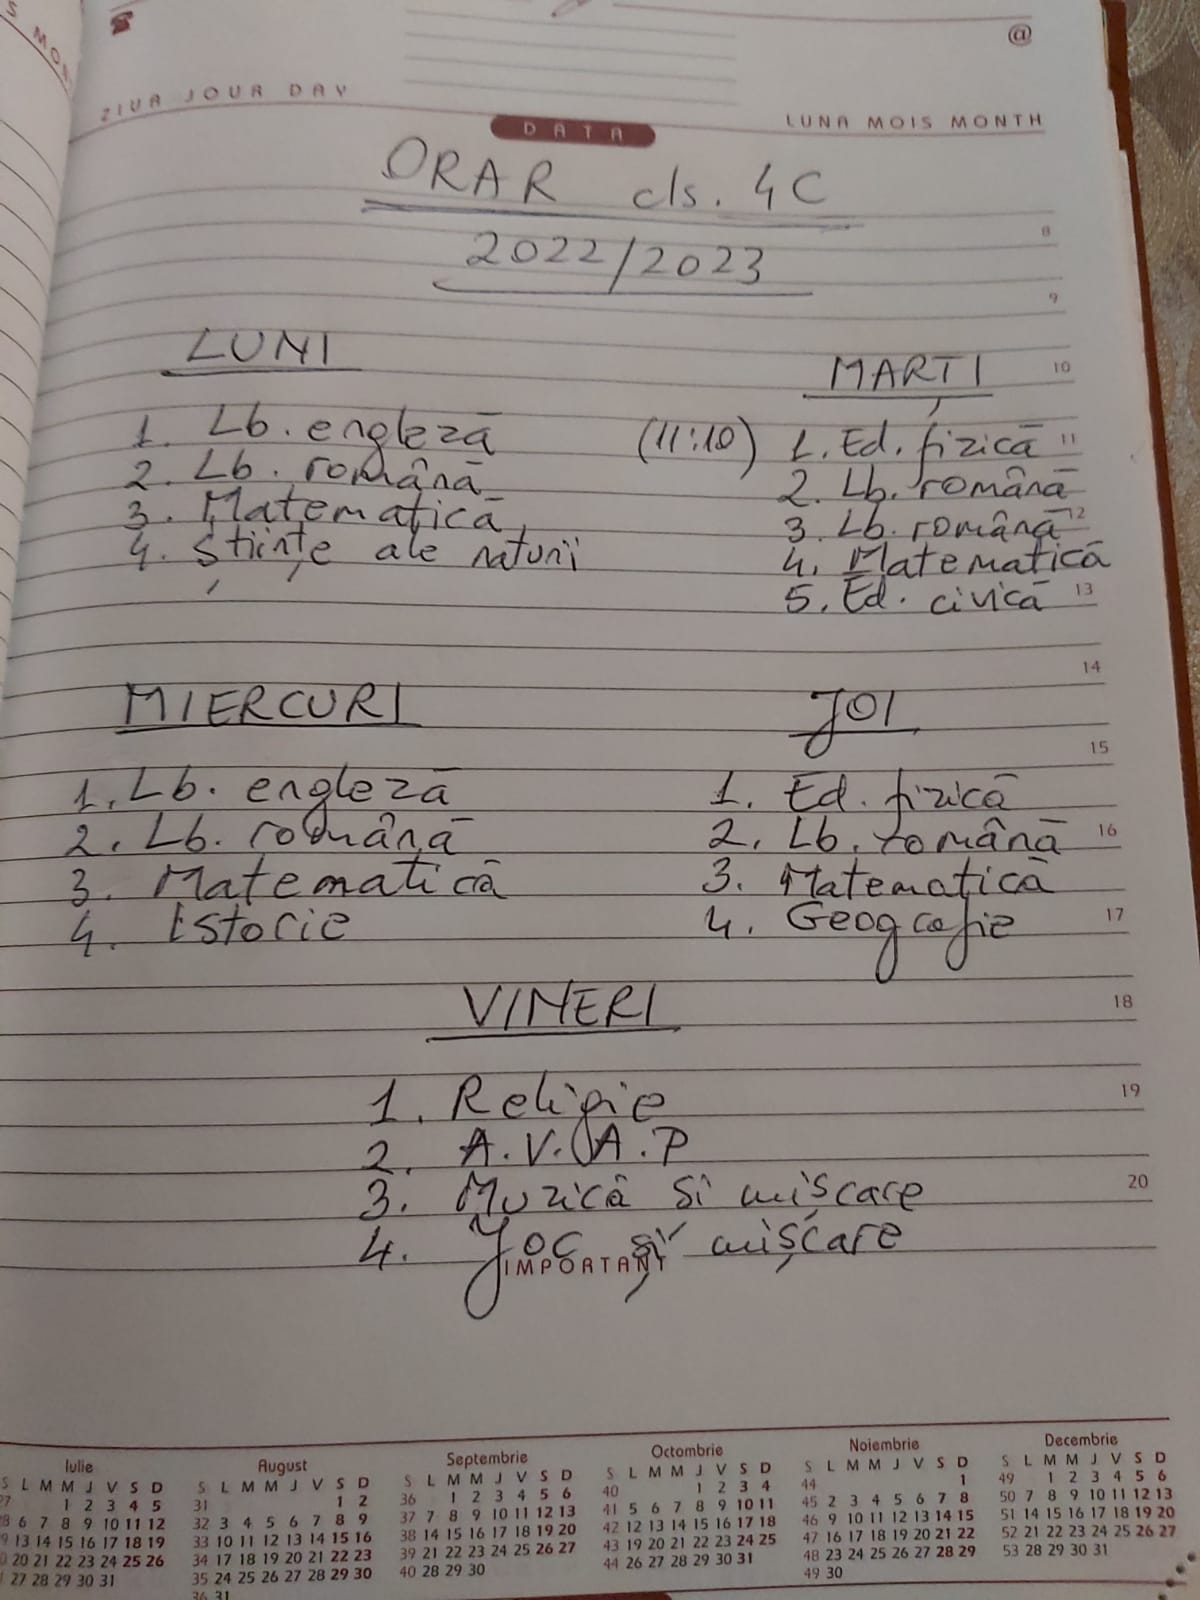 S MOI
ZIUA JOUR DAY
@
LUNA MOIS MONTH
DATA
ORAR cls. 4C
2022/2023
8
9
LUNI
1. Lb. engleză
2. Lb. română
3. Matematică
4. Științe ale naturii
MARȚI
10
(11:10) 1. Ed. fizică 11
2. Lb. română
3. Lb. română 12
4. Matematică
5. Ed. civică 13
14
MIERCURI
1. Lb. engleză
2. Lb. română
3. Matematică
4. Istorie
JOI
15
1. Ed. fizică
2. Lb. română 16
3. Matematică
4. Geografie 17
VINERI
18
1. Religie 19
2. A.V.A.P
3. Muzică si mișcare 20
4. Joc și mișcare
IMPORTANT
Iulie
S L M M J V S D
27 1 2 3 4 5
28 6 7 8 9 10 11 12
29 13 14 15 16 17 18 19
30 20 21 22 23 24 25 26
27 28 29 30 31
August
S L M M J V S D
31 1 2
32 3 4 5 6 7 8 9
33 10 11 12 13 14 15 16
34 17 18 19 20 21 22 23
35 24 25 26 27 28 29 30
36 31
Septembrie
S L M M J V S D
36 1 2 3 4 5 6
37 7 8 9 10 11 12 13
38 14 15 16 17 18 19 20
39 21 22 23 24 25 26 27
40 28 29 30
Octombrie
S L M M J V S D
40 1 2 3 4
41 5 6 7 8 9 10 11
42 12 13 14 15 16 17 18
43 19 20 21 22 23 24 25
44 26 27 28 29 30 31
Noiembrie
S L M M J V S D
44 1
45 2 3 4 5 6 7 8
46 9 10 11 12 13 14 15
47 16 17 18 19 20 21 22
48 23 24 25 26 27 28 29
49 30
Decembrie
S L M M J V S D
49 1 2 3 4 5 6
50 7 8 9 10 11 12 13
51 14 15 16 17 18 19 20
52 21 22 23 24 25 26 27
53 28 29 30 31